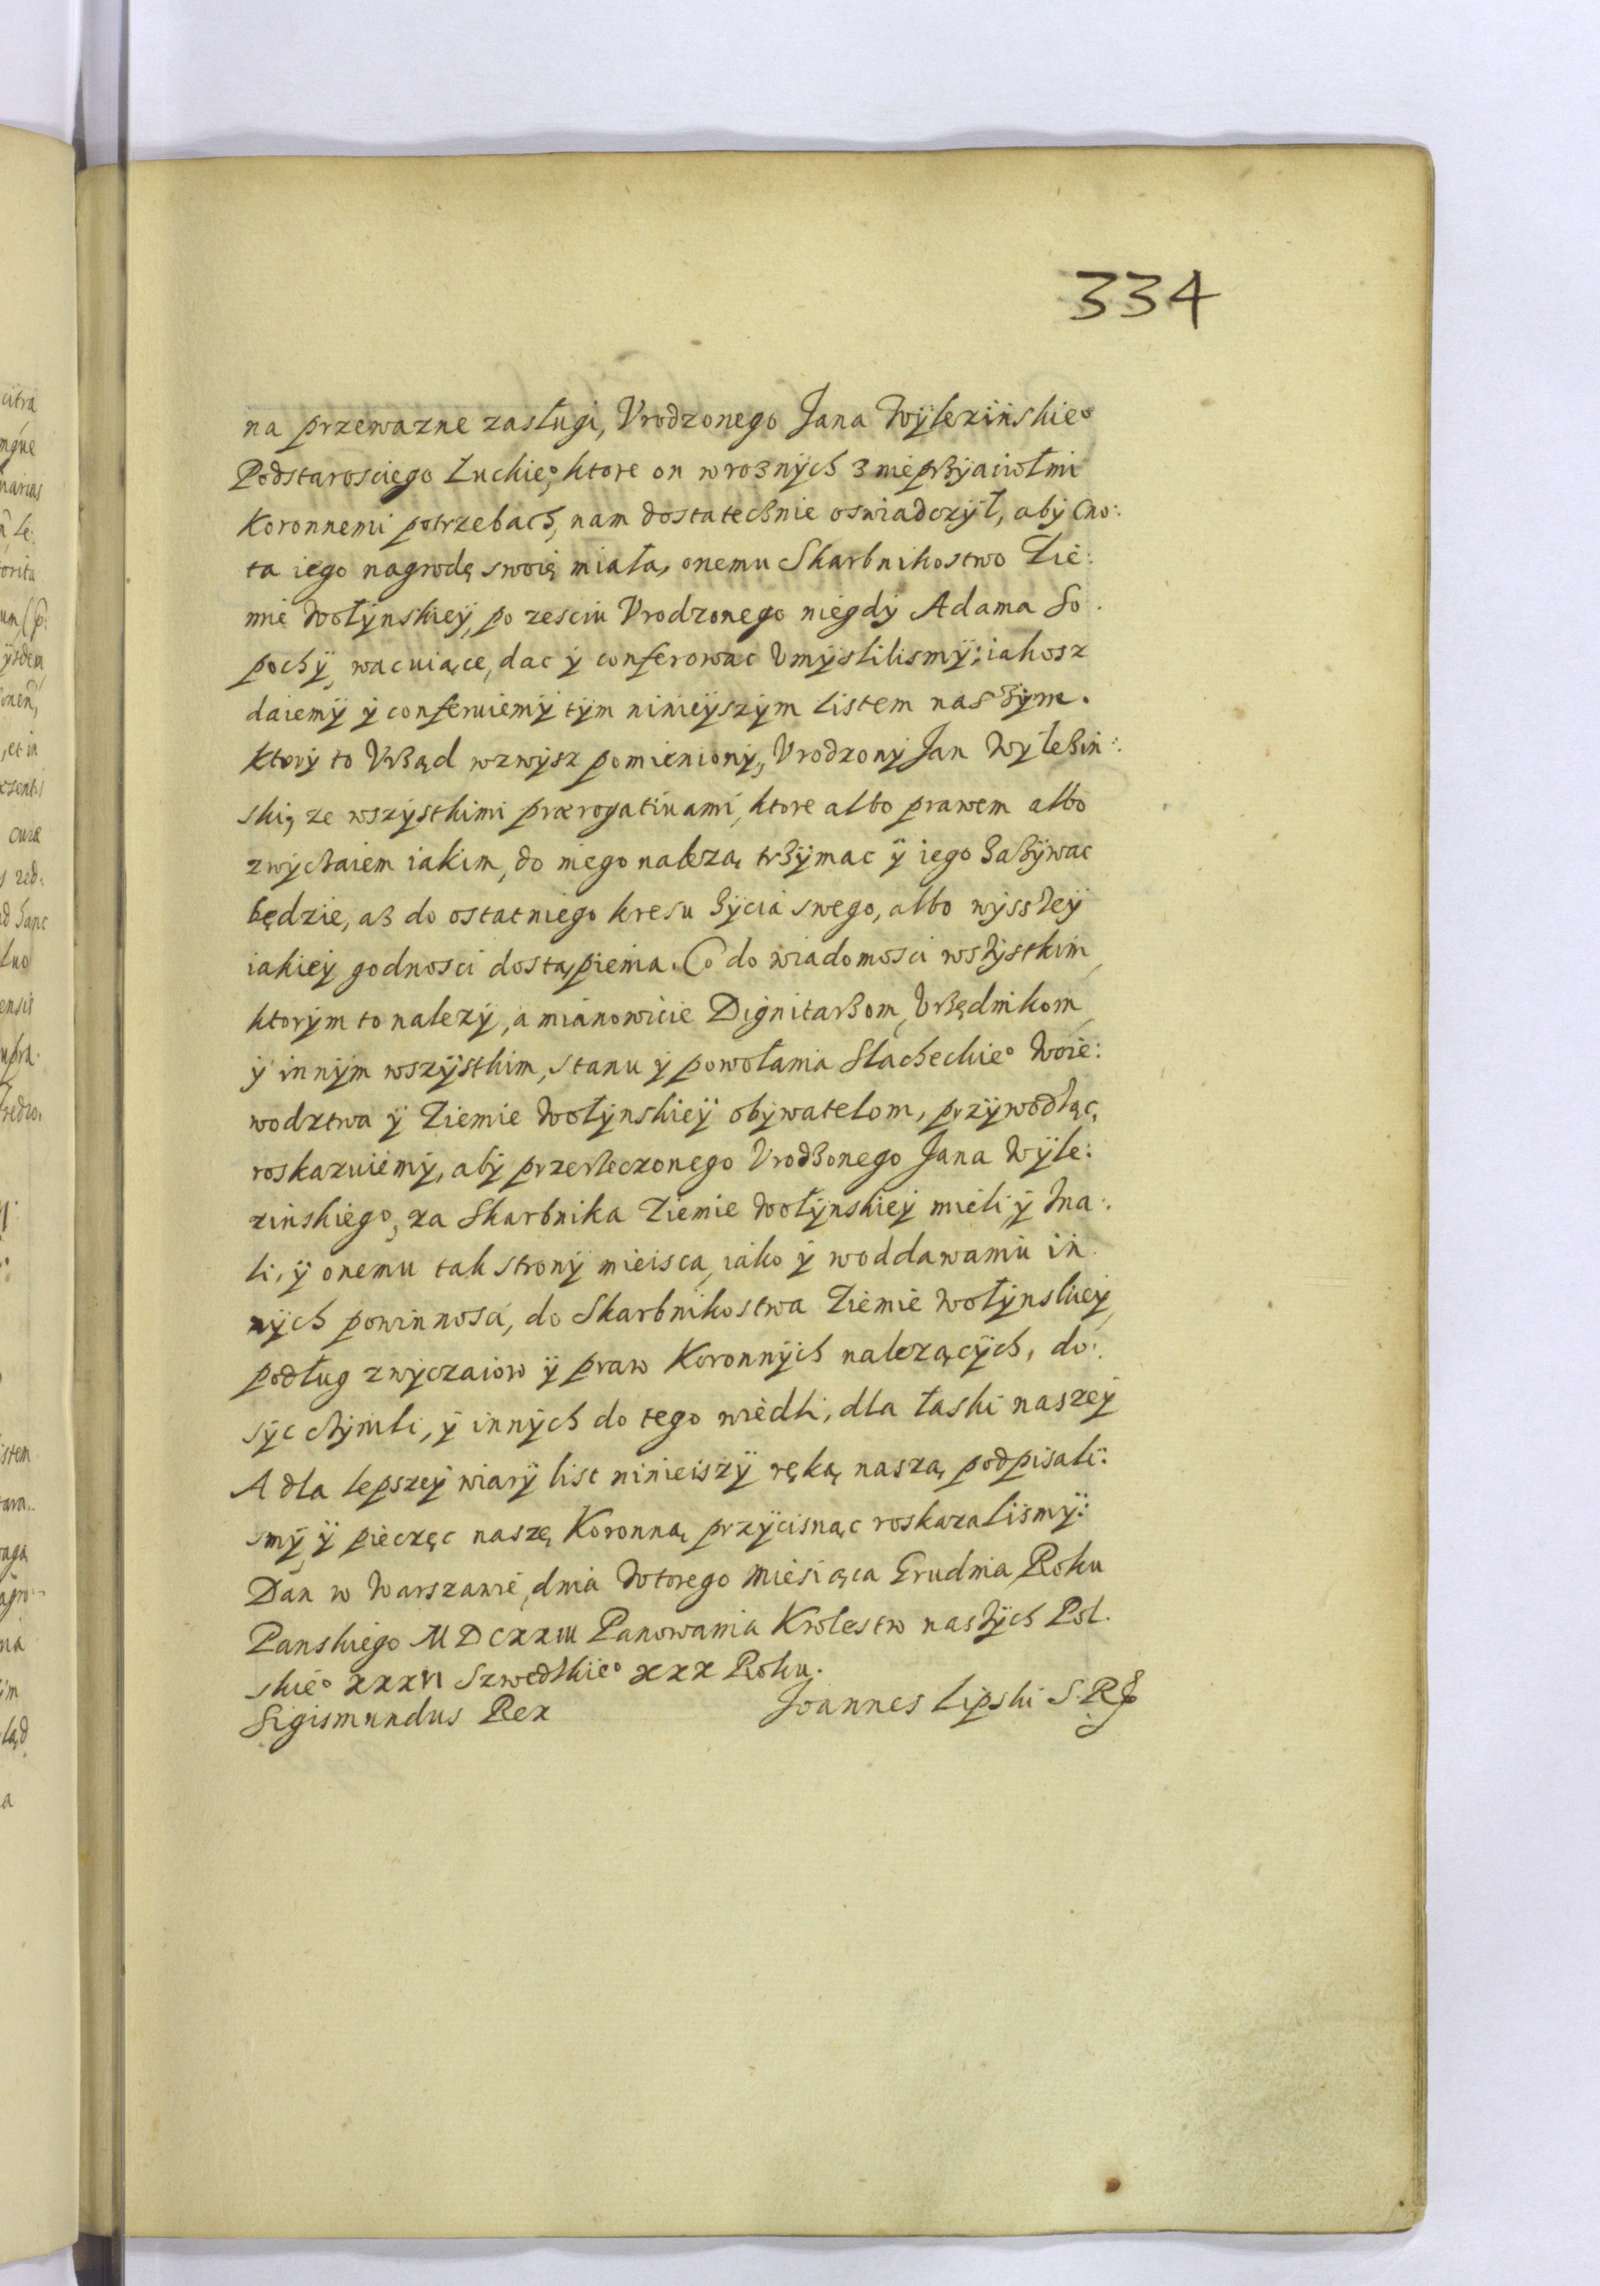 334
na przewazne zasługi, Vrodzonego Jana Wÿlezińskieº
Podstarosciego Łuckieº, ktore on w roznÿch z nieprzÿaciołmi
Koronnemi potrzebach, nam dostatecznie oswiadczÿł, abÿ Cno:
ta iego nagrodę swoię miała, onemu Skarbnikostwo Zie:
mie Wołÿnskieÿ, po zesciu Vrodzonego niegdÿ Adama So
pochÿ, wacuiące, dac ÿ conferowac Vmÿslilismÿ; iakosz
daiemÿ ÿ conferuiemÿ tÿm ninieÿszÿm listem naszÿm.
Ktorÿ to Vrząd wzwÿsz pomienionÿ, Vrodzonÿ Jan Wÿlezin:
ski, ze wszÿstkimi prærogatiuami, ktore albo prawem albo
zwÿczaiem iakim, do niego nalezą trzÿmac ÿ iego zazÿwac
będzie, az do ostatniego kresu zÿcia swego, albo wÿsszeÿ
iakieÿ godnosci dostąpienia. Co do wiadomosci wszÿstkim,
ktorÿm to nalezÿ, a mianowicie Dignitarzom, Vrzędnikom,
ÿ innÿm wszÿstkim, stanu ÿ powołania Slacheckieº Woie:
wodztwa ÿ Ziemie Wołÿnskieÿ obÿwatelom, przÿwodząc,
roskazuiemÿ, abÿ przerzeczonego Vrodzonego Jana Wÿle:
zinskiego, za Skarbnika Ziemie Wołÿnskieÿ mieli ÿ zna:
li, ÿ onemu tak stronÿ mieisca, iako ÿ w oddawaniu in
nÿch powinnosci, do Skarbnikostwa Ziemie Wołÿnskieÿ,
podług zwÿczaiow ÿ praw Koronnÿch nalezącÿch, do:
sÿc czÿnili, ÿ innÿch do tego wiedli, dla łaski naszeÿ
A dla lepszeÿ wiarÿ list ninieiszÿ ręką naszą podpisali:
smÿ, ÿ pieczęc naszę Koronną przÿcisnąc roskazalismÿ:
Dan w Warszawie, dnia Wtorego Miesiąca Grudnia Roku
Panskiego MDCXXIII Panowania Krolestw naszÿch Pol.
skieº XXXVI Szwedzkieº XXX Roku.
Sigismundus Rex Joannes Lipski S. R.